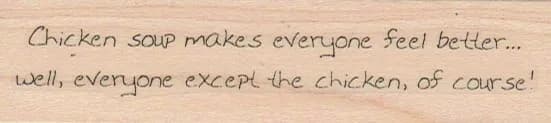 Chicken soup makes everyone feel better...
well, everyone except the chicken, of course!